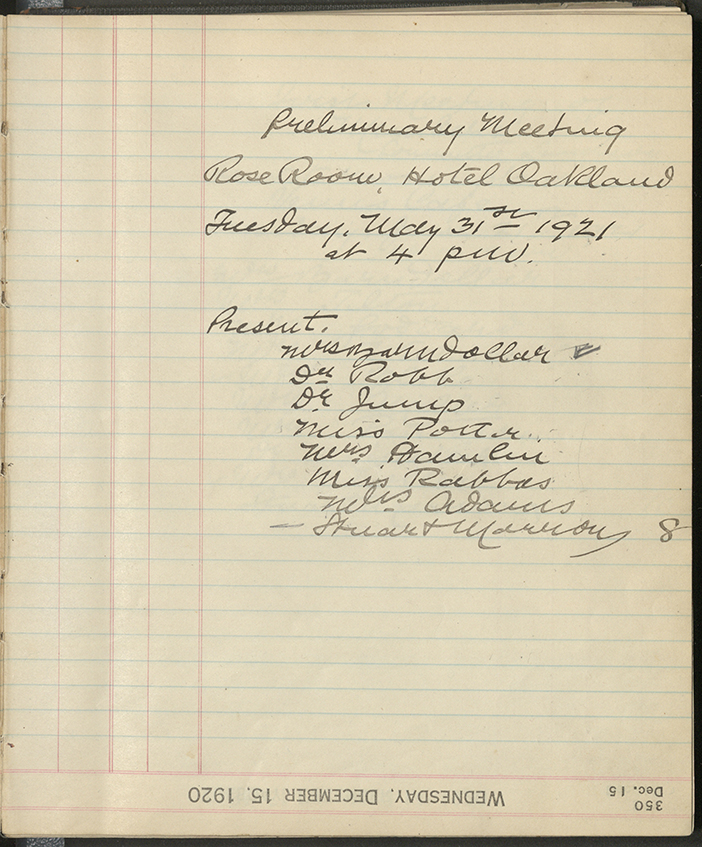 Preliminary Meeting
Rose Room, Hotel Oakland
Tuesday, May 31st 1921
at 4 p.m.
Present.
Mrs Dollar
Dr Robb
Dr Jump
Miss Potter
Mrs Hamlin
Miss Rabbas
Mrs Adams
— Stuart Morrow 8
WEDNESDAY, DECEMBER 15, 1920
350
Dec. 15